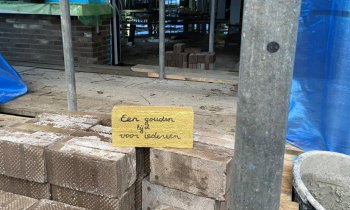 Een gouden
tijd
voor iedereen